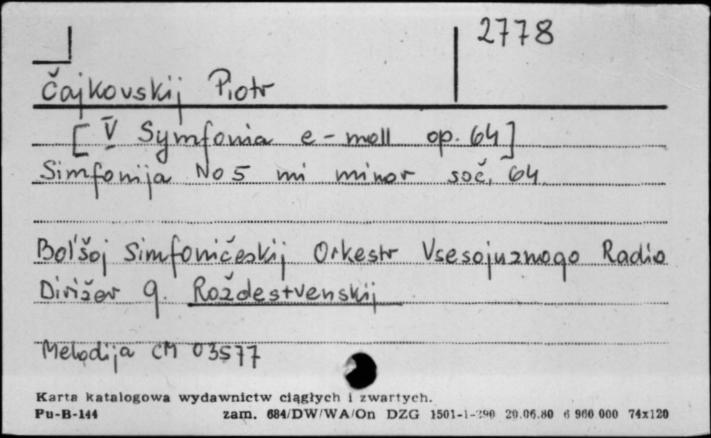 2778
Čajkovskij Piotr
[V Symfonia e-moll op. 64]
Simfonija No 5 mi minor soč. 64
Bol'šoj Simfoničeskij Orkestr Vsesojuznogo Radio
Dirižer G. Roždestvenskij
Melodija CM 03577
Karta katalogowa wydawnictw ciągłych i zwartych.
Pu-B-144 zam. 684/DW/WA/On DZG 1501-1-290 20.06.80 6 900 000 74x120